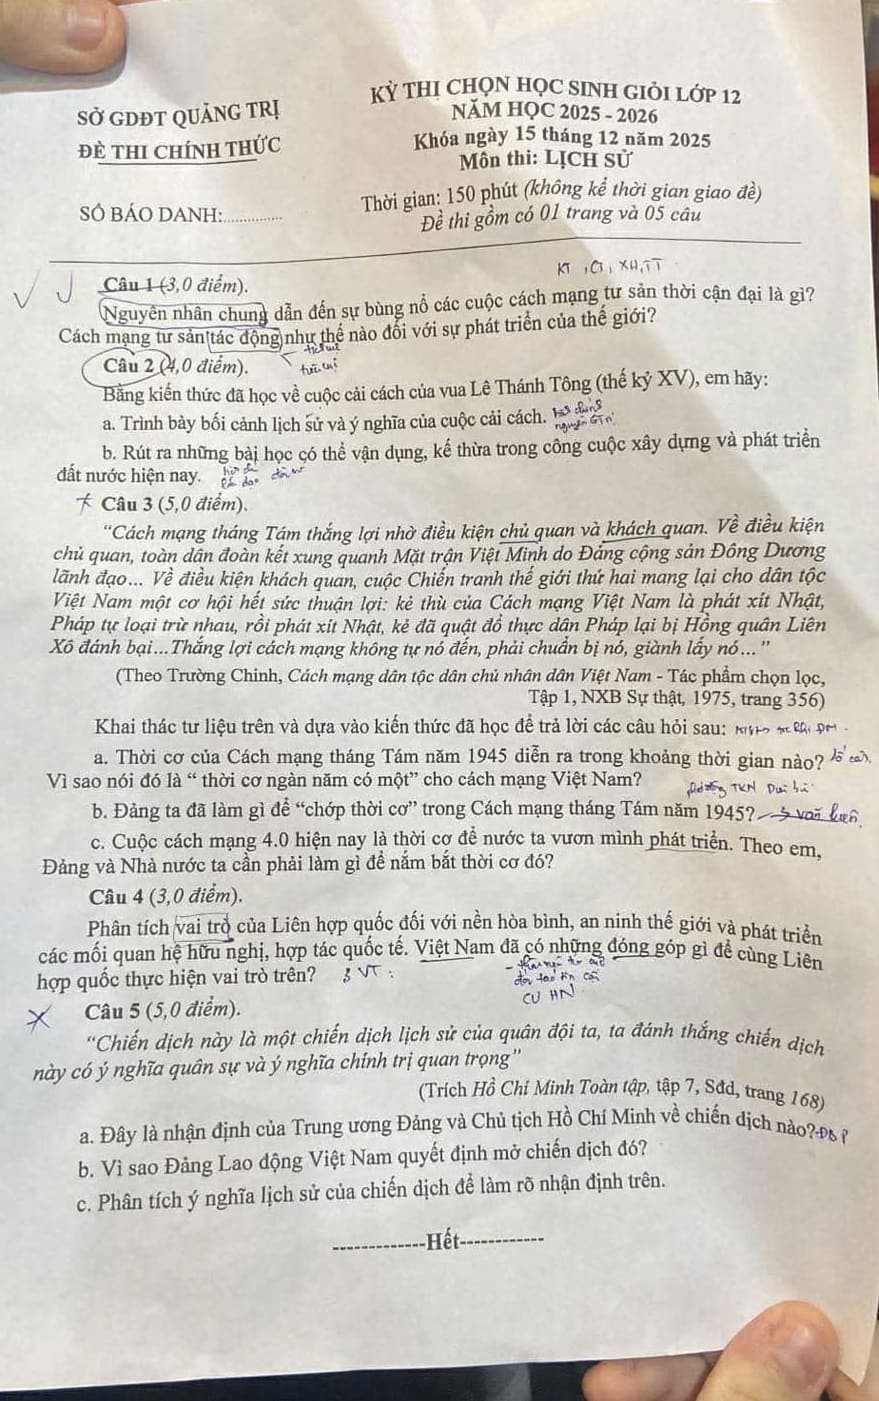 SỞ GDĐT QUẢNG TRỊ
ĐỀ THI CHÍNH THỨC
SỐ BÁO DANH:..............
KỲ THI CHỌN HỌC SINH GIỎI LỚP 12
NĂM HỌC 2025 - 2026
Khóa ngày 15 tháng 12 năm 2025
Môn thi: LỊCH SỬ
Thời gian: 150 phút (không kể thời gian giao đề)
Đề thi gồm có 01 trang và 05 câu
KT, CT, XH, TT
Câu 1 (3,0 điểm).
Nguyên nhân chung dẫn đến sự bùng nổ các cuộc cách mạng tư sản thời cận đại là gì?
Cách mạng tư sản tác động như thế nào đối với sự phát triển của thế giới?
Câu 2 (4,0 điểm).
tích cực
tiêu cực
Bằng kiến thức đã học về cuộc cải cách của vua Lê Thánh Tông (thế kỷ XV), em hãy:
a. Trình bày bối cảnh lịch sử và ý nghĩa của cuộc cải cách.
b. Rút ra những bài học có thể vận dụng, kế thừa trong công cuộc xây dựng và phát triển
đất nước hiện nay.
Câu 3 (5,0 điểm).
"Cách mạng tháng Tám thắng lợi nhờ điều kiện chủ quan và khách quan. Về điều kiện
chủ quan, toàn dân đoàn kết xung quanh Mặt trận Việt Minh do Đảng cộng sản Đông Dương
lãnh đạo... Về điều kiện khách quan, cuộc Chiến tranh thế giới thứ hai mang lại cho dân tộc
Việt Nam một cơ hội hết sức thuận lợi: kẻ thù của Cách mạng Việt Nam là phát xít Nhật,
Pháp tự loại trừ nhau, rồi phát xít Nhật, kẻ đã quật đổ thực dân Pháp lại bị Hồng quân Liên
Xô đánh bại...Thắng lợi cách mạng không tự nó đến, phải chuẩn bị nó, giành lấy nó..."
(Theo Trường Chinh, Cách mạng dân tộc dân chủ nhân dân Việt Nam - Tác phẩm chọn lọc,
Tập 1, NXB Sự thật, 1975, trang 356)
Khai thác tư liệu trên và dựa vào kiến thức đã học để trả lời các câu hỏi sau:
a. Thời cơ của Cách mạng tháng Tám năm 1945 diễn ra trong khoảng thời gian nào?
Vì sao nói đó là " thời cơ ngàn năm có một" cho cách mạng Việt Nam?
b. Đảng ta đã làm gì để "chớp thời cơ" trong Cách mạng tháng Tám năm 1945?
c. Cuộc cách mạng 4.0 hiện nay là thời cơ để nước ta vươn mình phát triển. Theo em,
Đảng và Nhà nước ta cần phải làm gì để nắm bắt thời cơ đó?
Câu 4 (3,0 điểm).
Phân tích vai trò của Liên hợp quốc đối với nền hòa bình, an ninh thế giới và phát triển
các mối quan hệ hữu nghị, hợp tác quốc tế. Việt Nam đã có những đóng góp gì để cùng Liên
hợp quốc thực hiện vai trò trên?
3 VT:
Câu 5 (5,0 điểm).
"Chiến dịch này là một chiến dịch lịch sử của quân đội ta, ta đánh thắng chiến dịch
này có ý nghĩa quân sự và ý nghĩa chính trị quan trọng"
(Trích Hồ Chí Minh Toàn tập, tập 7, Sđd, trang 168)
a. Đây là nhận định của Trung ương Đảng và Chủ tịch Hồ Chí Minh về chiến dịch nào? ĐBP
b. Vì sao Đảng Lao động Việt Nam quyết định mở chiến dịch đó?
c. Phân tích ý nghĩa lịch sử của chiến dịch để làm rõ nhận định trên.
-------------Hết------------